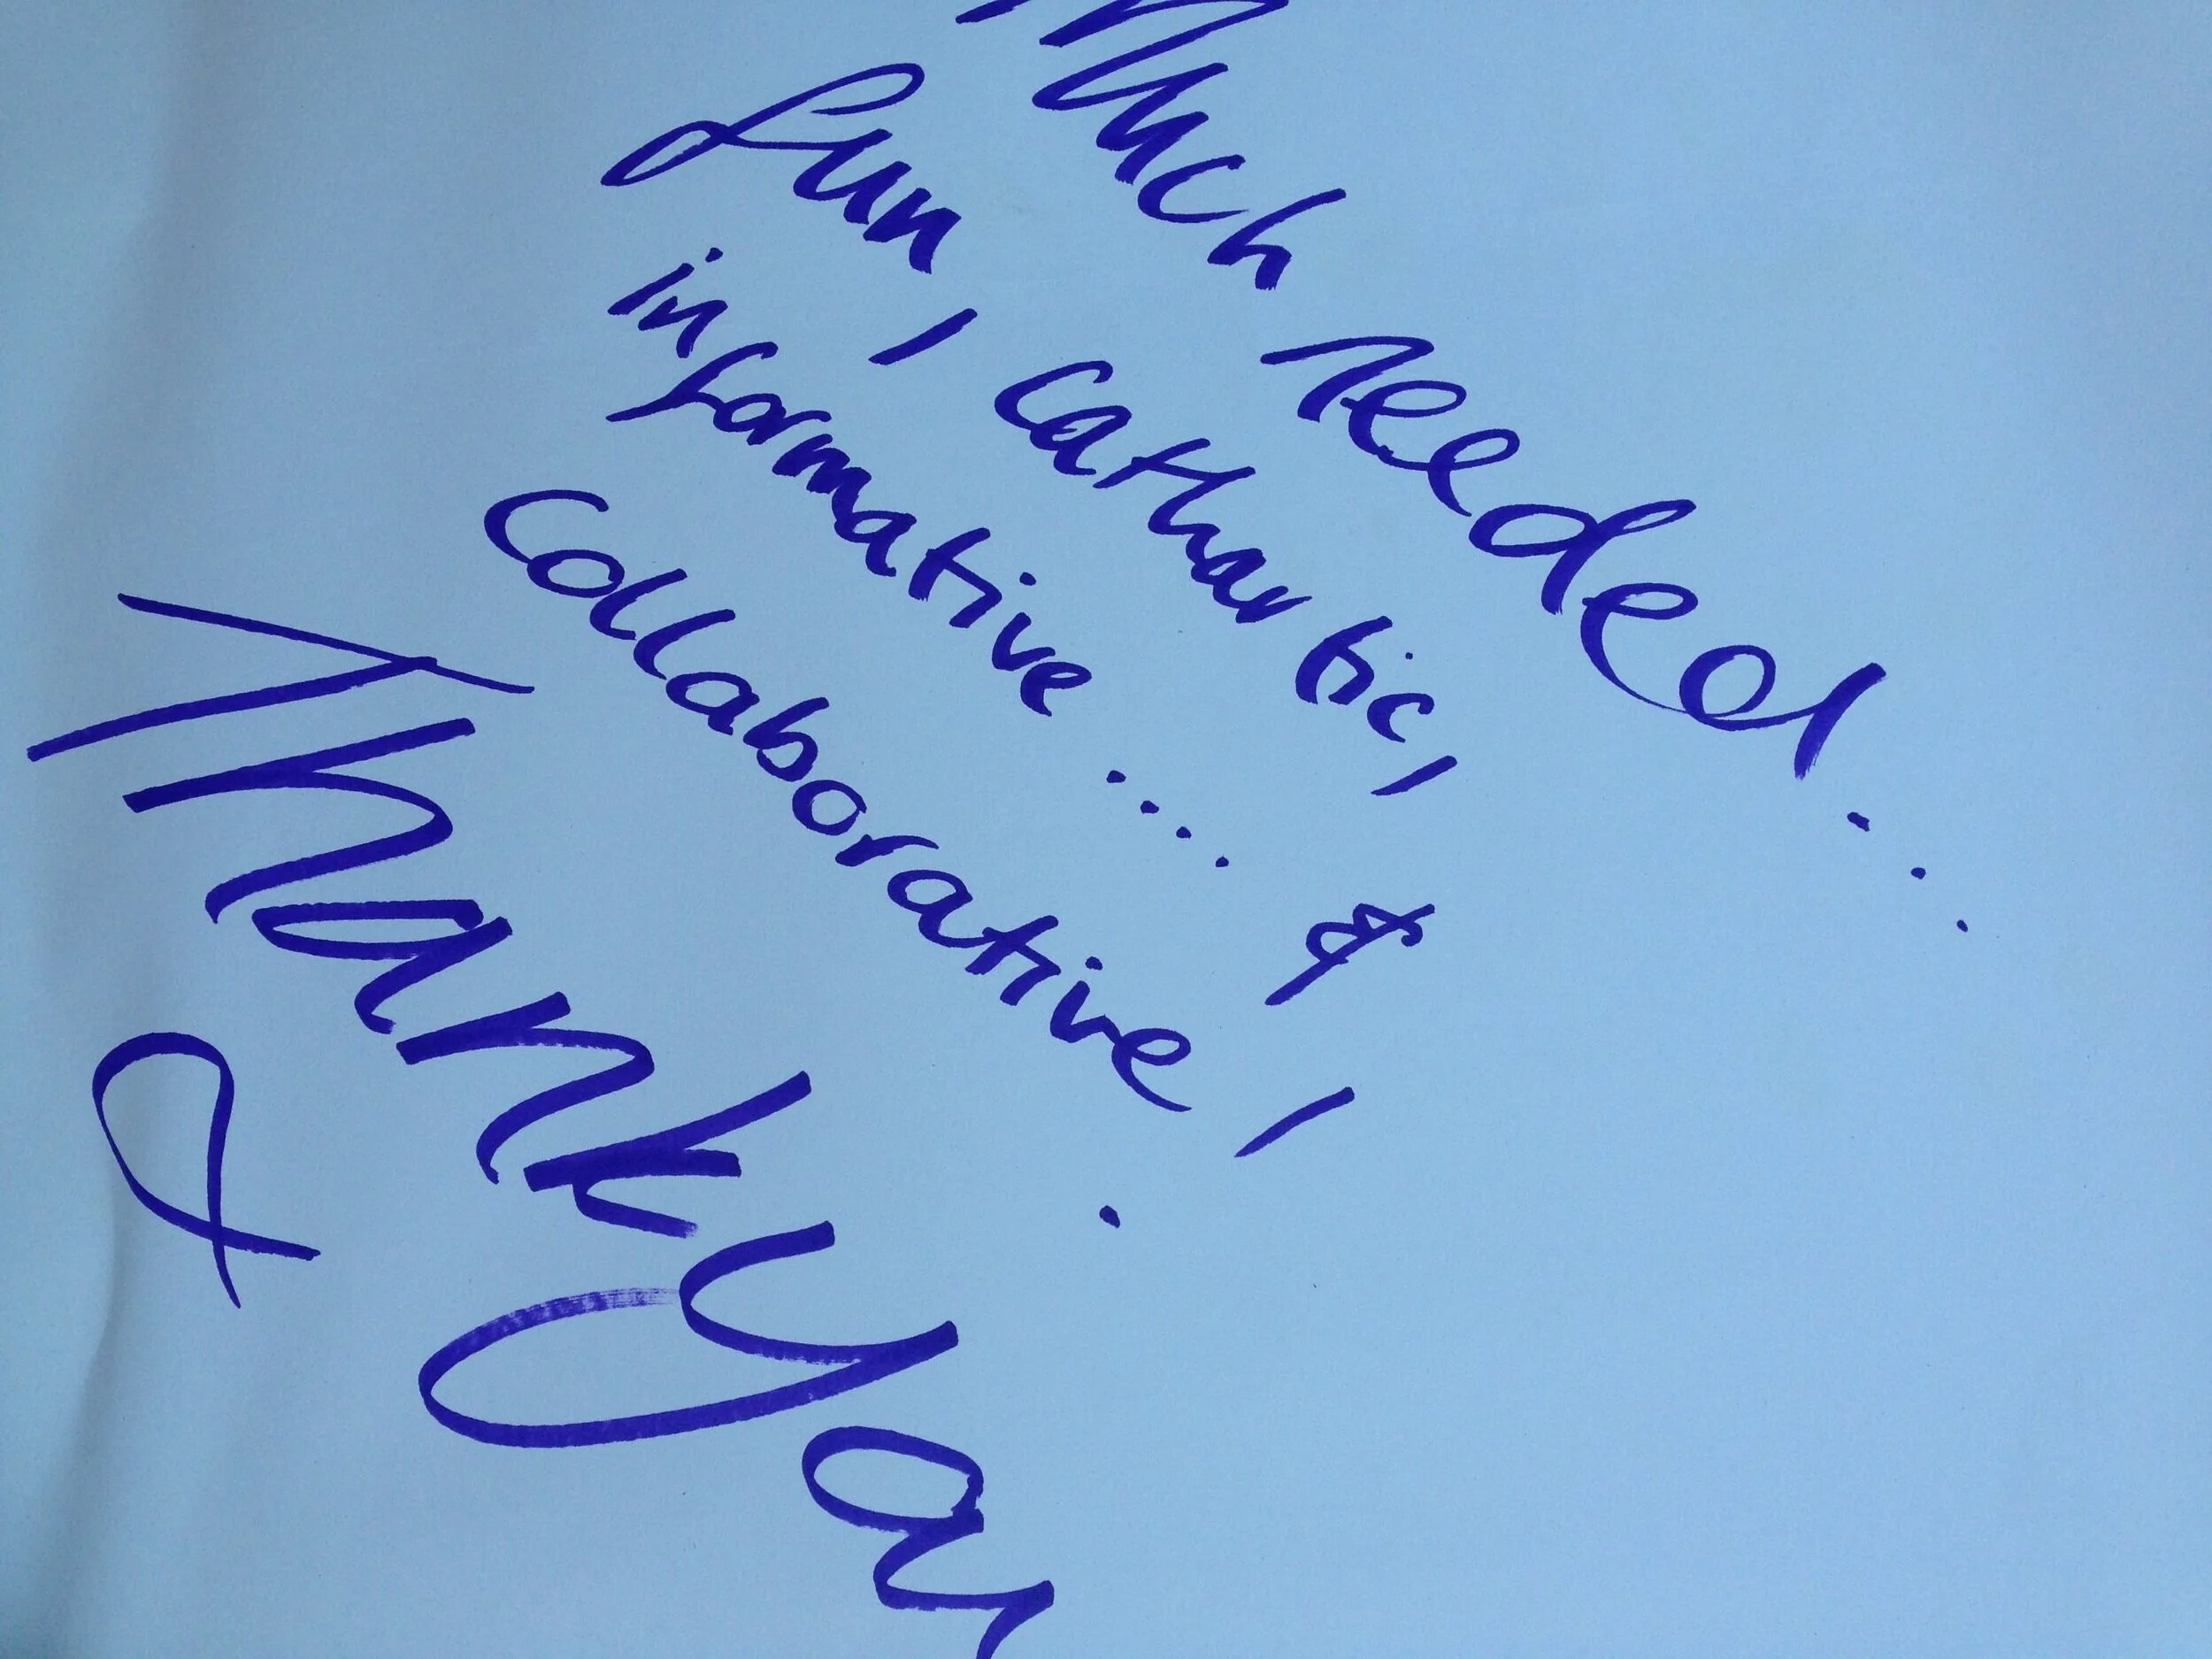 Much needed...
fun, cathartic,
informative.... &
collaborative!
Thank you